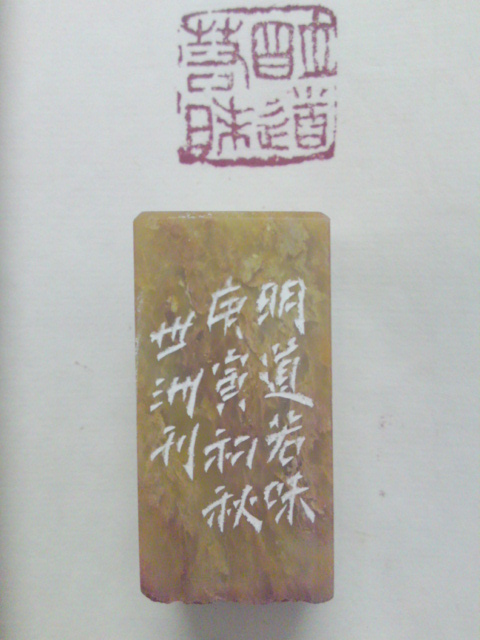 明道
若昧
明道若昧
庚寅初秋
世洲刊